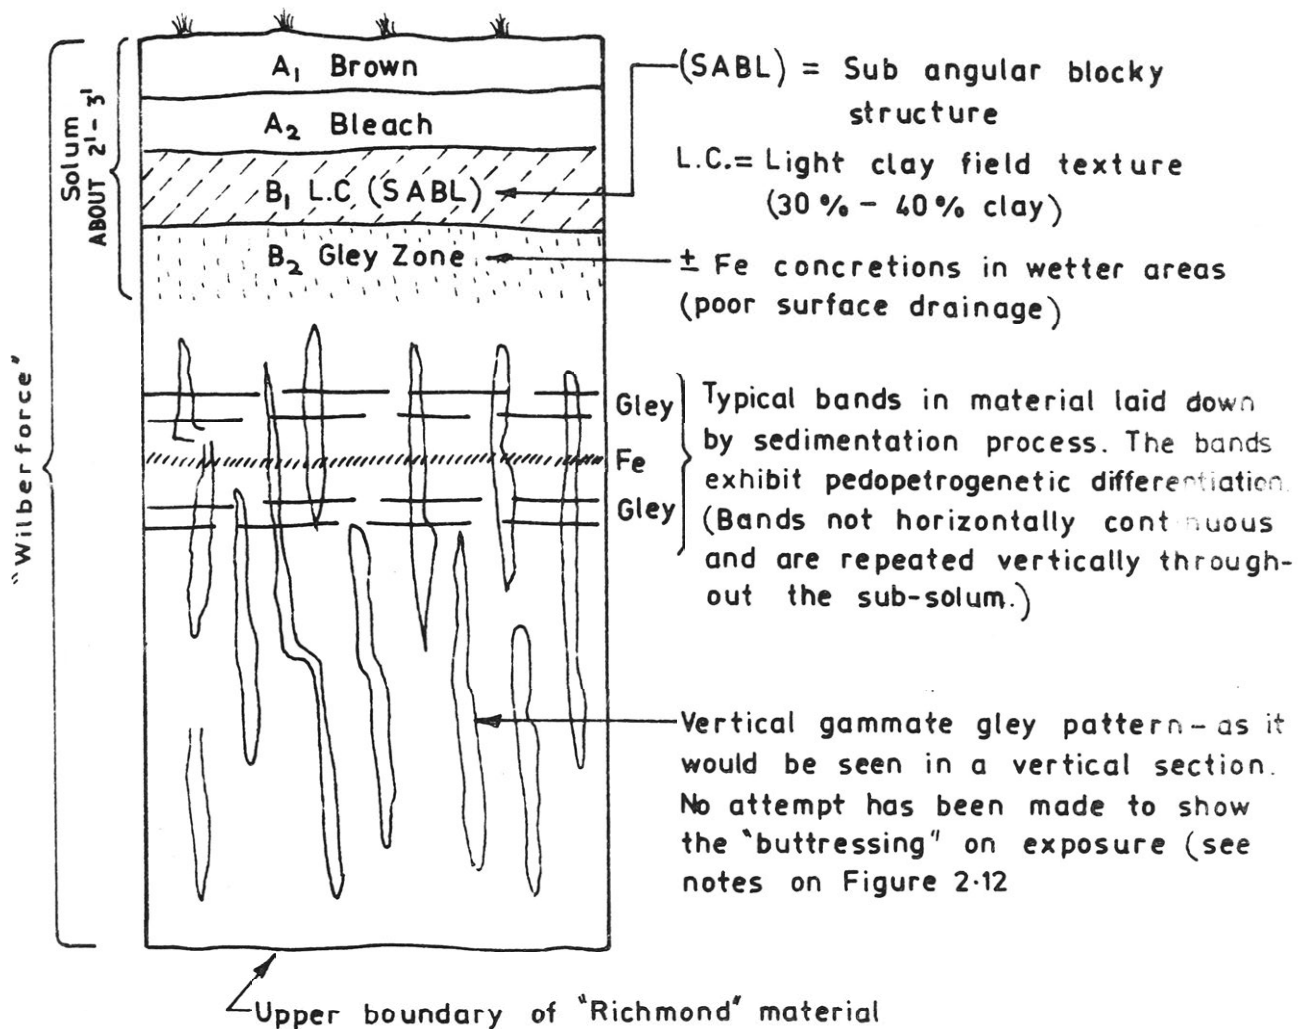 A₁ Brown
A₂ Bleach
B₁ L.C (SABL)
B₂ Gley Zone
Solum
ABOUT 2'-3'
"Wilberforce"
(SABL) = Sub angular blocky
structure
L.C. = Light clay field texture
(30 % - 40 % clay)
± Fe concretions in wetter areas
(poor surface drainage)
Gley
Fe
Gley
Typical bands in material laid down
by sedimentation process. The bands
exhibit pedopetrogenetic differentiation.
(Bands not horizontally continuous
and are repeated vertically through-
out the sub-solum.)
Vertical gammate gley pattern - as it
would be seen in a vertical section.
No attempt has been made to show
the "buttressing" on exposure (see
notes on Figure 2·12
Upper boundary of "Richmond" material